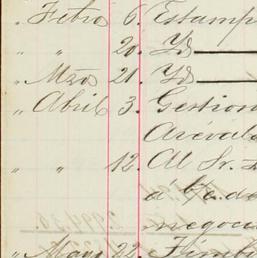 " Febro 6. Estamp
" " 20. Yd
" Mzo 21. Yd
" Abril 3. Gestion
Arévalo
" " 12. Al Sr.
a b/a. de
negocia
" Mayo 22. Timb